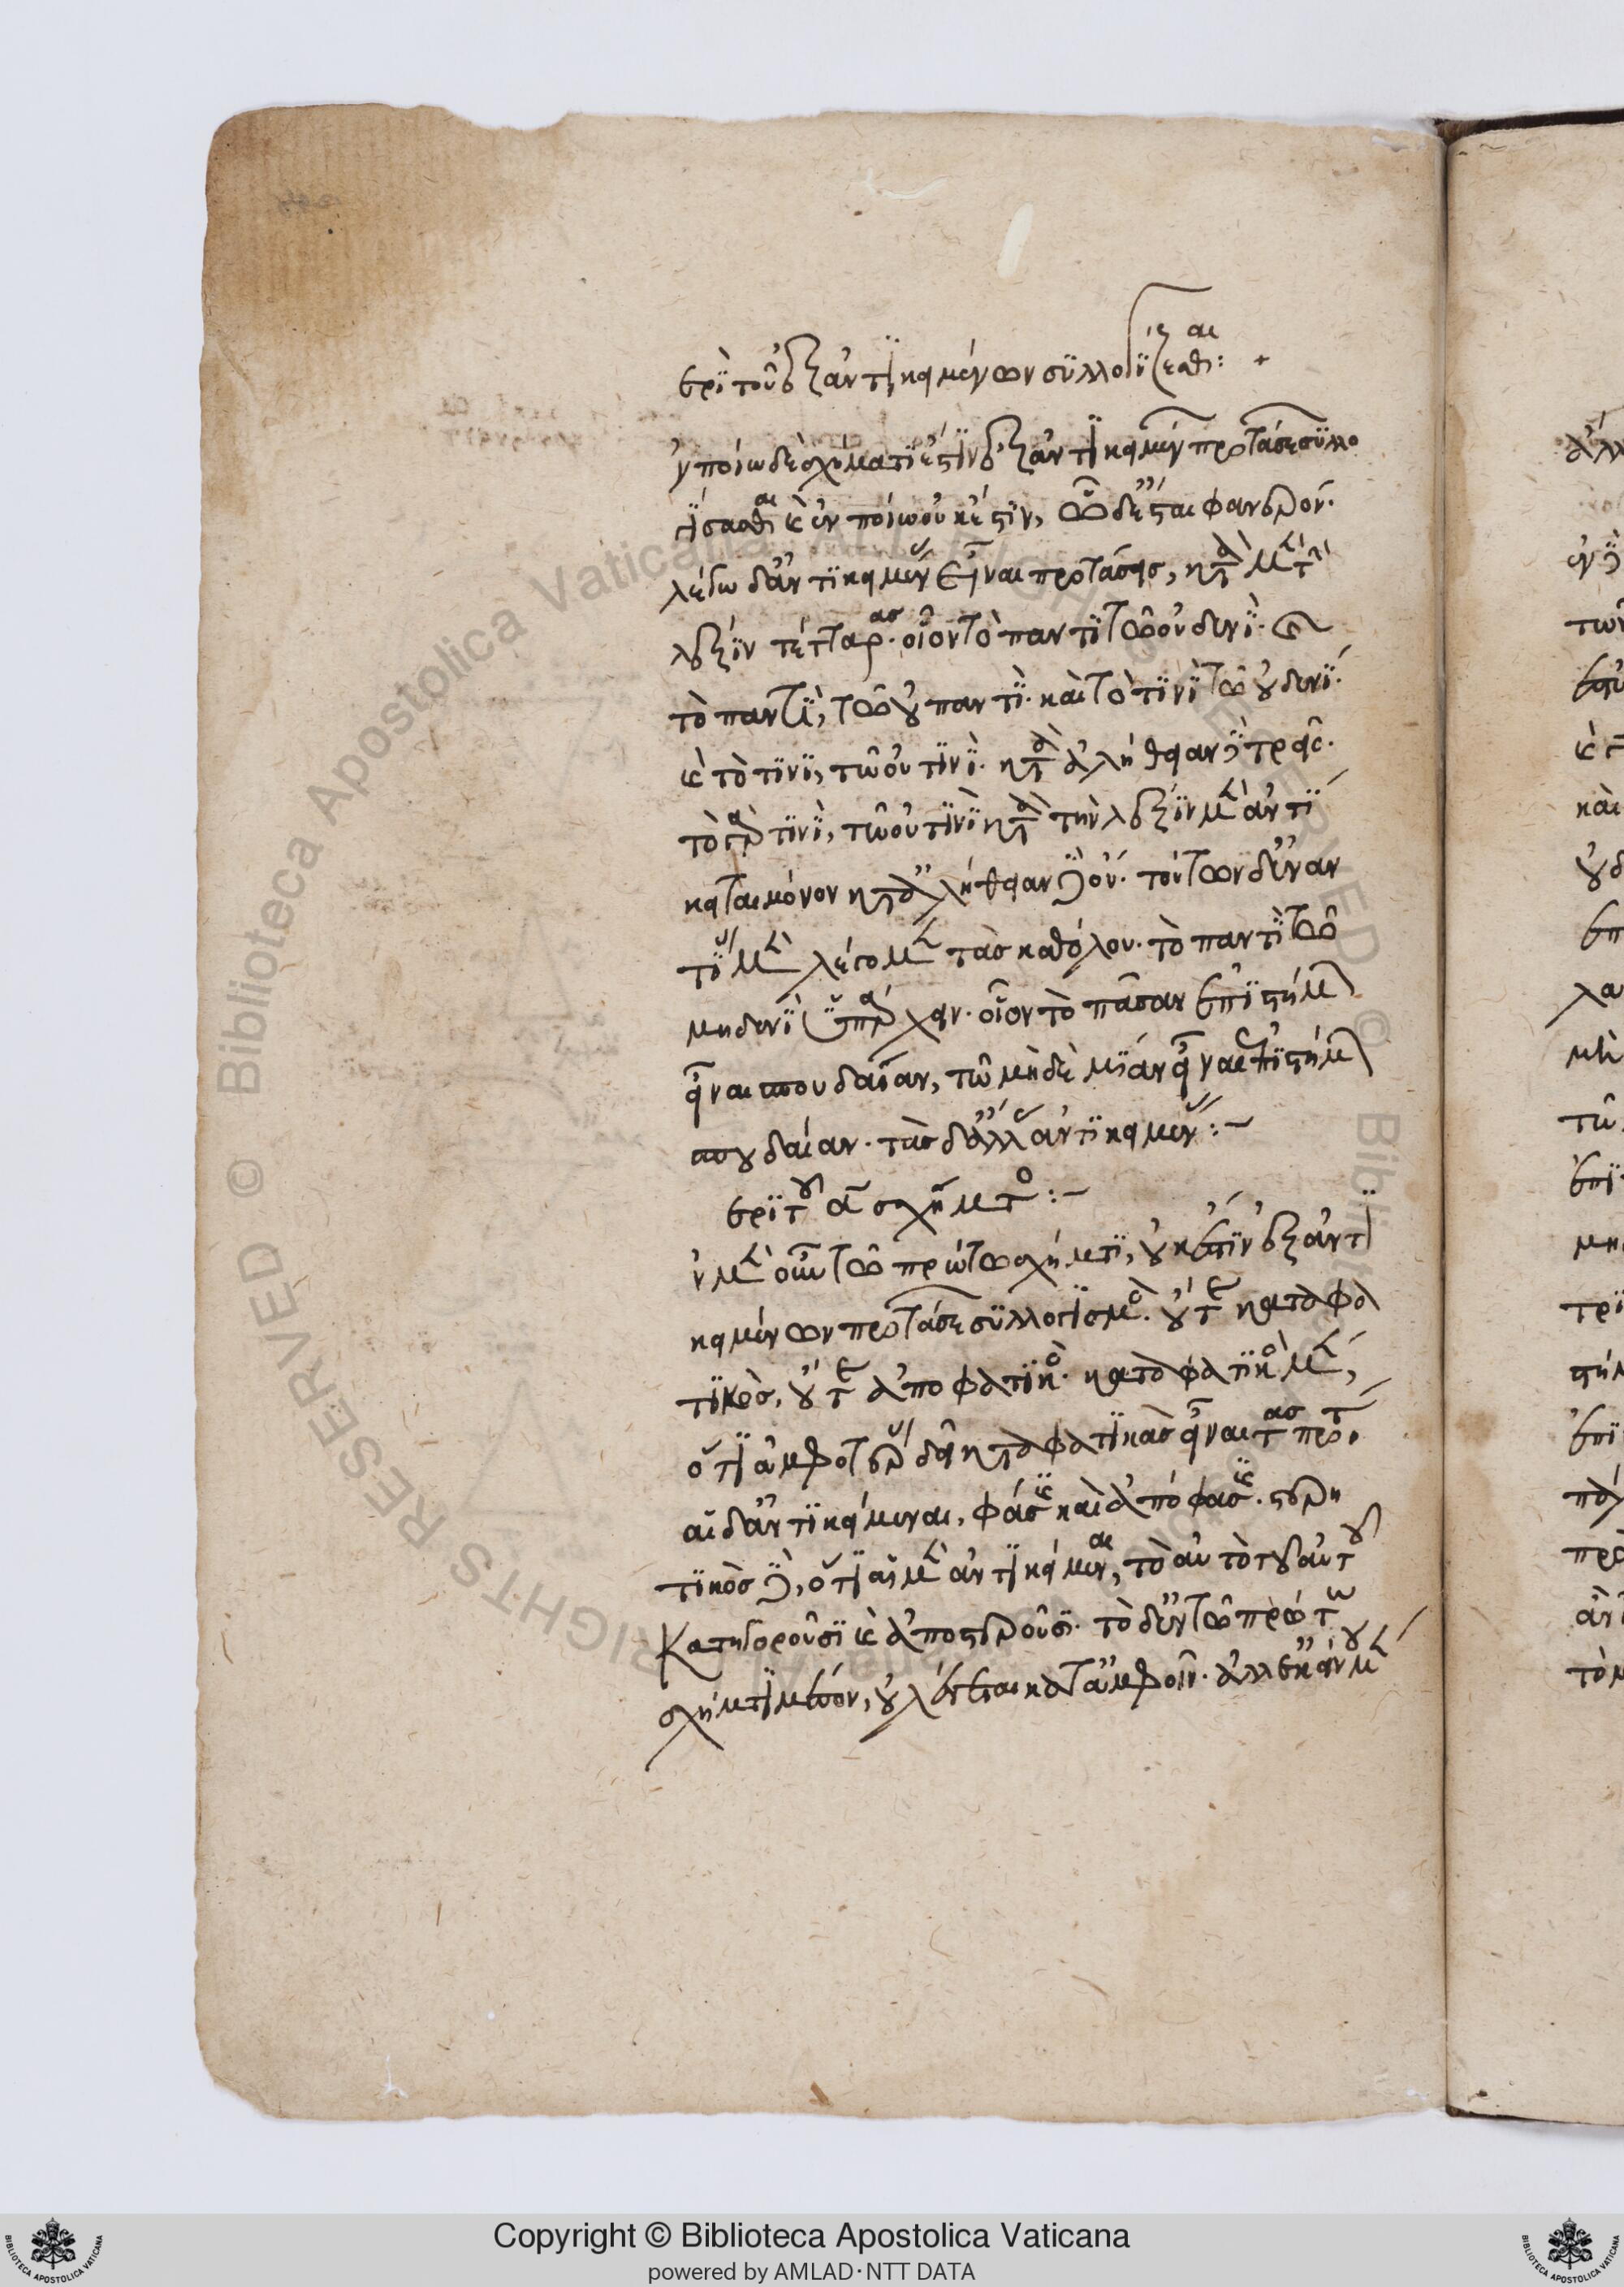 ερὶ τοῦ ἐξ ἀντικειμένων συλλογίζεσθαι:+
ν ποίω δὲ σχήματι ἔστιν ἐξ ἀντικειμένων προτάσεων συλλο
γίσασθαι καὶ ἐν ποίω οὐκ ἔστιν, ὧδ' ἔσται φανερόν.
λέγω δ' ἀντικειμένας εἶναι προτάσεις, κατὰ μὲν τὴν
λέξιν τέτταρας. οἷον τὸ παντὶ τῶ οὐδενί. καὶ
τὸ παντὶ, τῶ οὐ παντί. καὶ τὸ τινὶ τῶ οὐδενί.
καὶ τὸ τινὶ, τῶ οὐ τινί. κατὰ ἀλήθειαν δὲ τρεῖς.
τὸ γὰρ τινὶ, τῶ οὐ τινὶ κατὰ τὴν λέξιν μὲν ἀντί
κειται μόνον κατ' ἀλήθειαν δὲ οὔ. τούτων δ' ἐναν
τίας μὲν λέγομεν τὰς καθόλου. τὸ παντὶ τῶ
μηδενὶ ὑπάρχειν. οἷον τὸ πᾶσαν ἐπιστήμην
εἶναι σπουδαίαν, τῶ μηδὲ μίαν εἶναι ἐπιστήμην
σπουδαίαν. τὰς δ' ἄλλας ἀντικειμένας:-
ερὶ τοῦ α σχήματος:-
ν μὲν οὖν τῶ πρώτω σχήματι, οὐκ ἔστιν ἐξ ἀντι
κειμένων προτάσεων συλλογισμός. οὔτε καταφα
τικὸς, οὔτε ἀποφατικός. καταφατικὸς μὲν,
ὅτι ἀμφοτέρας δεῖ καταφατικὰς εἶναι τὰς προτ
αἱ δ' ἀντικείμεναι, φάσις καὶ ἀπόφασις. στερη
τικὸς δὲ, ὅτι αἱ μὲν ἀντικείμεναι, τὸ αὐτὸ τοῦ αὐτοῦ
κατηγοροῦσι καὶ ἀποστεροῦσι. τὸ δ' ἐν τῶ πρώτω
σχήματι μέσον, οὐ λέγεται κατ' ἀμφοῖν. ἀλλ' ἐκείνου μὲν
Copyright © Biblioteca Apostolica Vaticana
powered by AMLAD·NTT DATA